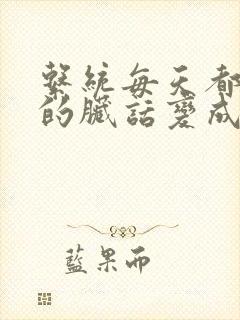 繫統每天都
的臟話變成
藍果而